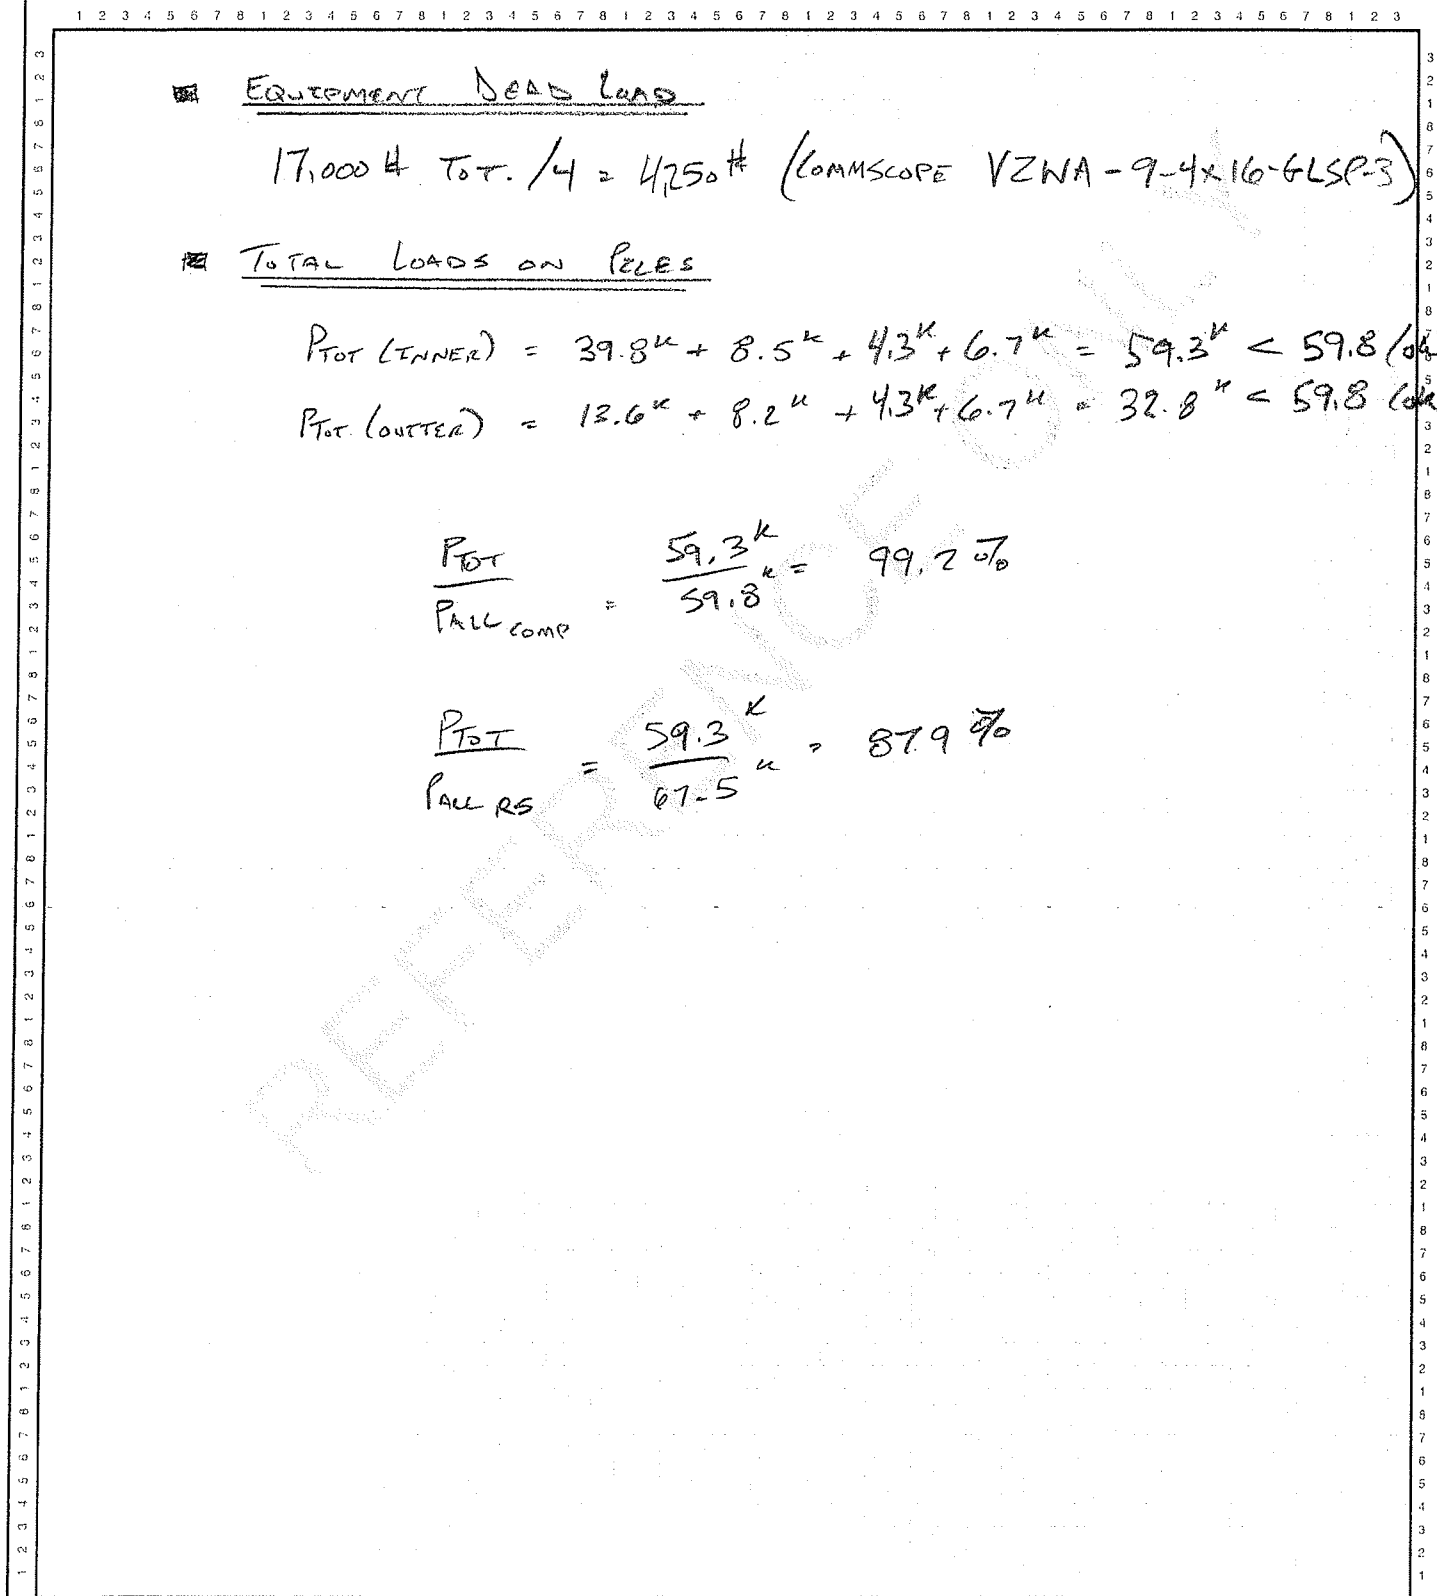 1 2 3 4 5 6 7 8 1 2 3 4 5 6 7 8 1 2 3 4 5 6 7 8 1 2 3 4 5 6 7 8 1 2 3 4 5 6 7 8 1 2 3 4 5 6 7 8 1 2 3 4 5 6 7 8 1 2 3
EQUIPMENT DEAD LOAD
17,000 # TOT. /4 = 4,250 # (COMMSCOPE VZWA-9-4x16-GLSP-3)
TOTAL LOADS ON PILES
PTOT (INNER) = 39.8k + 8.5k + 4.3k + 6.7k = 59.3k < 59.8 (ok
PTOT (OUTTER) = 13.6k + 8.2k + 4.3k + 6.7k = 32.8k < 59.8 (ok
PTOT / PALL COMP = 59.3k / 59.8k = 99.2%
PTOT / PALL RS = 59.3k / 67.5k = 87.9%
REFERENCE ONLY